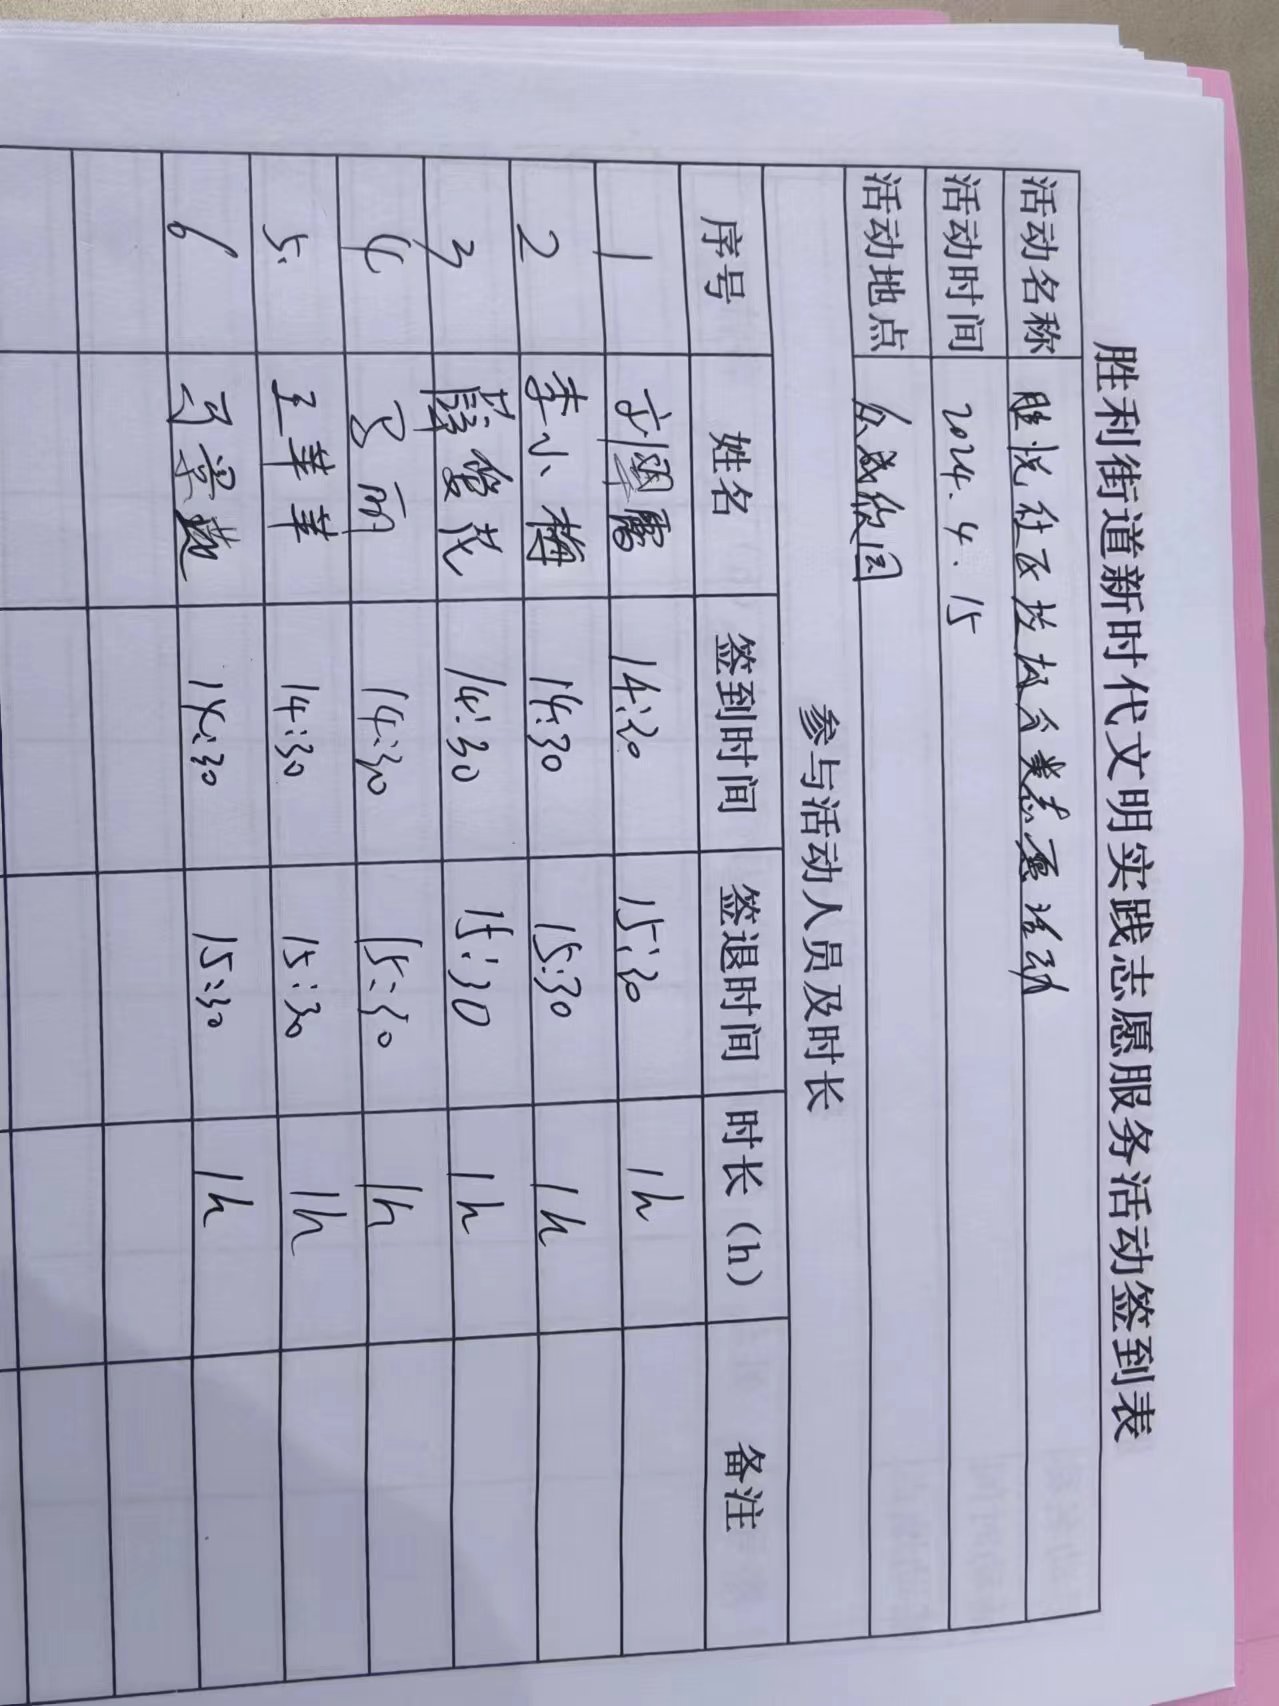 胜利街道新时代文明实践志愿服务活动签到表
活动名称 胜悦社区垃圾分类志愿活动
活动时间 2024.4.15
活动地点 众成欣园
参与活动人员及时长
序号 姓名 签到时间 签退时间 时长（h） 备注
1 14:30 15:30 1h
2 李小梅 14:30 15:30 1h
3 薛 14:30 15:30 1h
4 14:30 15:30 1h
5. 王苹苹 14:30 15:30 1h
6 14:30 15:30 1h